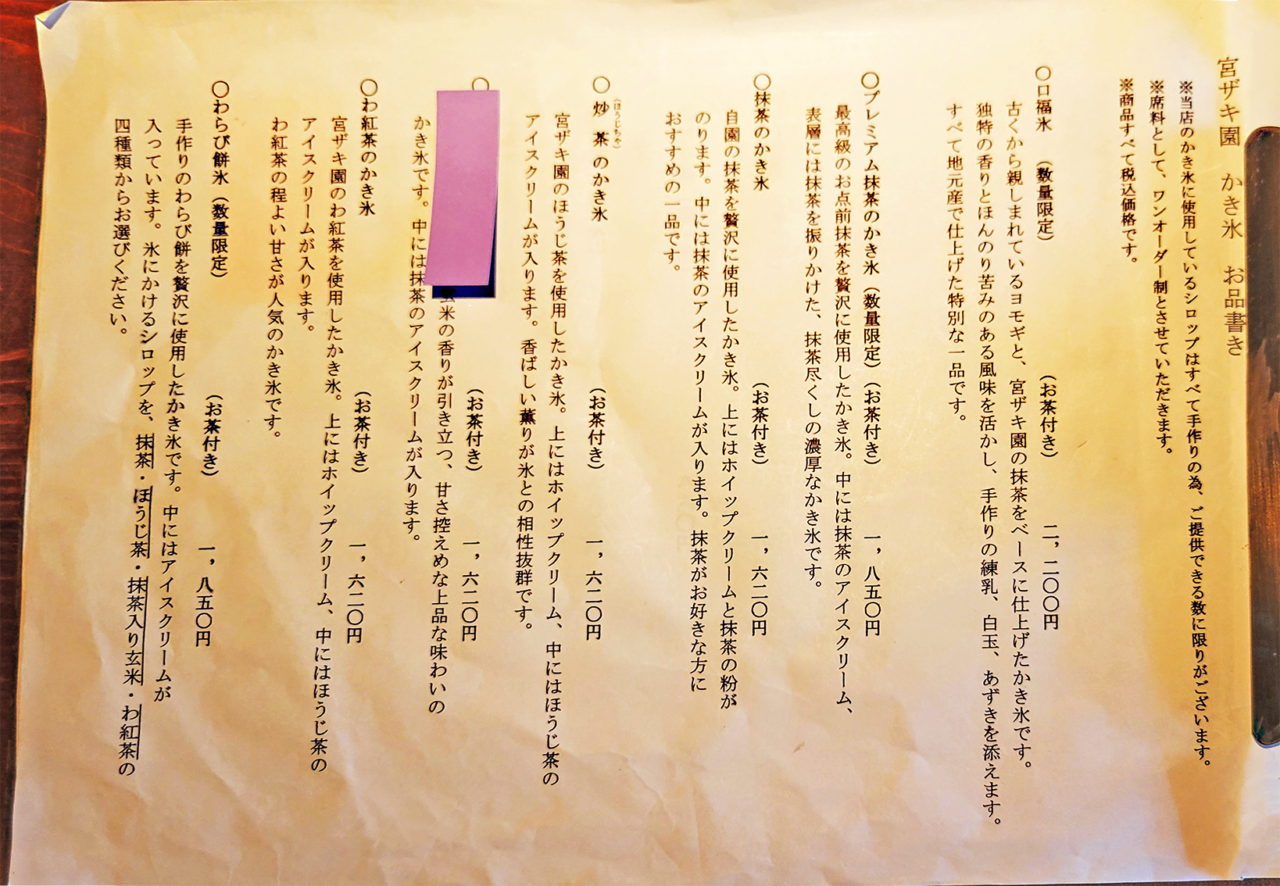 宮ザキ園 かき氷 お品書き
※当店のかき氷に使用しているシロップはすべて手作りの為、ご提供できる数に限りがございます。
※席料として、ワンオーダー制とさせていただきます。
※商品すべて税込価格です。
〇口福氷 (数量限定) (お茶付き) 二,二〇〇円
古くから親しまれているヨモギと、宮ザキ園の抹茶をベースに仕上げたかき氷です。
独特の香りとほんのり苦みのある風味を活かし、手作りの練乳、白玉、あずきを添えます。
すべて地元産で仕上げた特別な一品です。
〇プレミアム抹茶のかき氷(数量限定)(お茶付き) 一,八五〇円
最高級のお点前抹茶を贅沢に使用したかき氷。中には抹茶のアイスクリーム、
表層には抹茶を振りかけた、抹茶尽くしの濃厚なかき氷です。
〇抹茶のかき氷 (お茶付き) 一,六二〇円
自園の抹茶を贅沢に使用したかき氷。上にはホイップクリームと抹茶の粉が
のります。中には抹茶のアイスクリームが入ります。抹茶がお好きな方に
おすすめの一品です。
〇炒茶のかき氷 (お茶付き) 一,六二〇円
(ほうじちゃ)
宮ザキ園のほうじ茶を使用したかき氷。上にはホイップクリーム、中にはほうじ茶の
アイスクリームが入ります。香ばしい薫りが氷との相性抜群です。
〇 (お茶付き) 一,六二〇円
米の香りが引き立つ、甘さ控えめな上品な味わいの
かき氷です。中には抹茶のアイスクリームが入ります。
〇わ紅茶のかき氷 (お茶付き) 一,六二〇円
宮ザキ園のわ紅茶を使用したかき氷。上にはホイップクリーム、中にはほうじ茶の
アイスクリームが入ります。
わ紅茶の程よい甘さが人気のかき氷です。
〇わらび餅氷(数量限定) (お茶付き) 一,八五〇円
手作りのわらび餅を贅沢に使用したかき氷です。中にはアイスクリームが
入っています。氷にかけるシロップを、抹茶・ほうじ茶・抹茶入り玄米・わ紅茶の
四種類からお選びください。